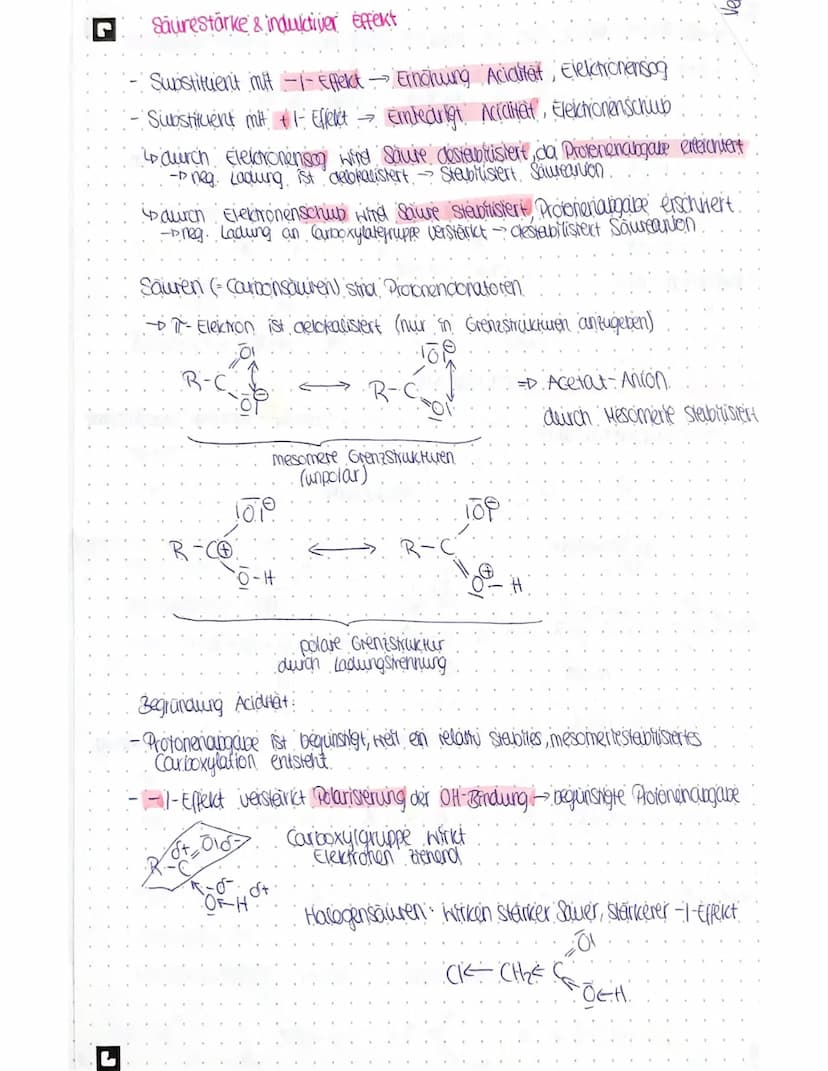 Säurestärke & induktiver Effekt
- Substituent mit -I-Effekt → Erhöhung Acidität, Elektronensog
- Substituent mit +I-Effekt → Erniedrigt Acidität, Elektronenschub
↳ durch Elektronensog wird Säure destabilisiert, da Protonenabgabe erleichtert
→ neg. Ladung ist delokalisiert → Stabilisiert Säureanion
↳ durch Elektronenschub wird Säure stabilisiert, Protonenabgabe erschwert
→ neg. Ladung an Carboxylatgruppe verstärkt → destabilisiert Säureanion
Säuren (= Carbonsäuren) sind Protonendonatoren
→ π-Elektron ist delokalisiert (nur in Grenzstrukturen anzugeben)
R-C O O⊖ ↔ R-C O⊖ O ⇒ Acetat-Anion
durch Mesomerie stabilisiert
mesomere Grenzstrukturen
(unpolar)
R-C⊕ O⊖ O-H ↔ R-C O⊖ O⊕-H
polare Grenzstruktur
durch Ladungstrennung
Begründung Acidität:
- Protonenabgabe ist begünstigt, weil ein relativ stabiles, mesomeriestabilisiertes
Carboxylation entsteht
- -I-Effekt verstärkt Polarisierung der OH-Bindung → begünstigte Protonenabgabe
R-C δ+ = O δ-
O δ- ← H δ+
Carboxylgruppe wirkt
Elektronen ziehend
Halogensäuren: wirken stärker sauer, stärkerer -I-Effekt
Cl ← CH₂ ← C = O
O ← H